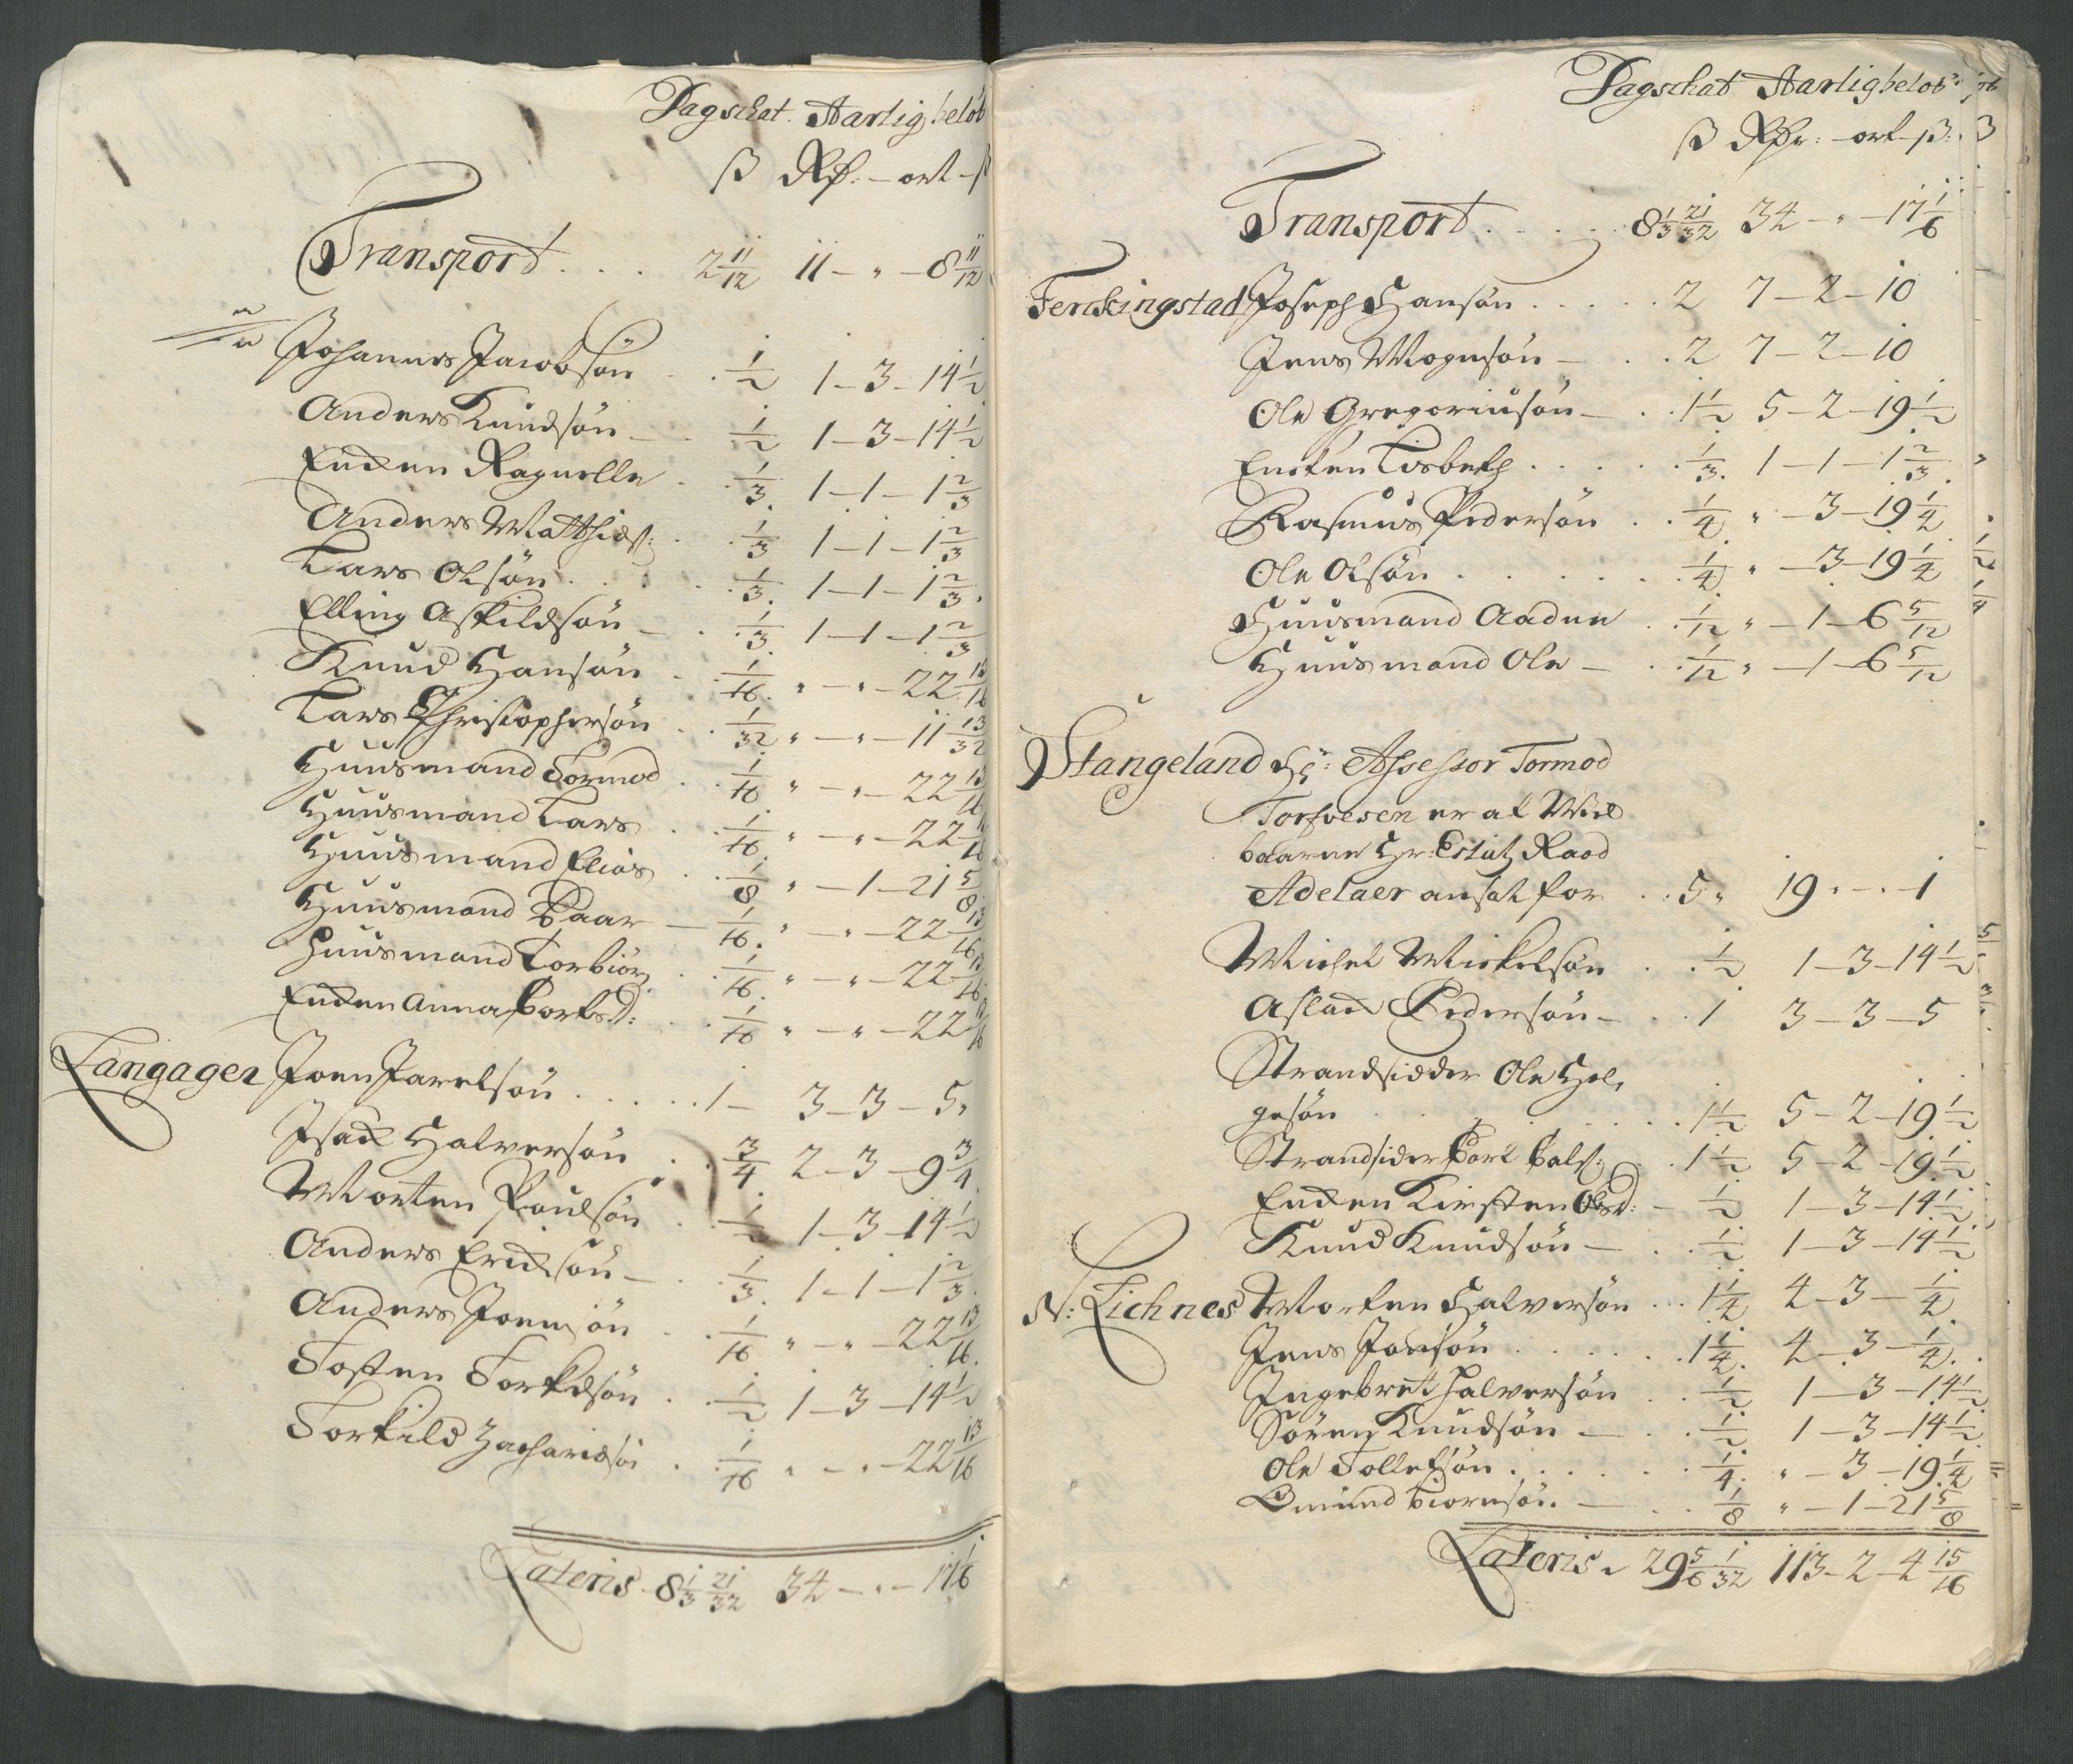 Dagschat. Aarlig beløb
ß Rdr: – ort – ß
Transport . . . . 2 11/12 11 – " – 8 11/12
Johannes Jacobsön . . 1/2 1 – 3 – 14 1/2
Anders Knudsön – . 1/2 1 – 3 – 14 1/2
Encken Ragnelle . . 1/3 1 – 1 – 1 2/3
Anders Matthiæs: . . 1/3 1 – 1 – 1 2/3
Lars Olsön . . . . 1/3 1 – 1 – 1 2/3
Elling Askildsön – . 1/3 1 – 1 – 1 2/3
Knud Hansön . . 1/16 " – " – 22 13/16
Lars Christophersön . . 1/32 " – " – 11 13/32
Huusmand Tormod . . 1/16 " – " – 22 13/16
Huusmand Lars . . 1/16 " – " – 22 13/16
Huusmand Elias . . 1/8 " – 1 – 21 5/8
Huusmand Baar – 1/16 " – " – 22 13/16
Huusmand Torbiörn . . 1/16 " – " – 22 13/16
Encken Anna Borksd: . . 1/16 " – " – 22 13/16
Langager Joen Jarelsön . . . . . 1 – 3 – 3 – 5
Isack Halversön . . 3/4 2 – 3 – 9 3/4
Morten Poulsön . . 1/2 1 – 3 – 14 1/2
Anders Ericksön – . . 1/3 1 – 1 – 1 2/3
Anders Joensön . . 1/16 " – " – 22 13/16
Tosten Torkildsön . . 1/2 1 – 3 – 14 1/2
Torkild Zachariæsön . . 1/16 " – " – 22 13/16
Lateris . 8 1/3 21/32 34 – " – 17 1/6
Dagschat Aarlig beløb
ß Rdr: – ort – ß:
Transport . . . . . 8 1/3 21/32 34 – " – 17 1/6
Ferckingstad Joseph Hansön . . . . . 2 7 – 2 – 10
Jens Mogensön – . . 2 7 – 2 – 10
Ole Gregoriusön – . . 1 1/2 5 – 2 – 19 1/2
Encken Lisbeth . . . . . 1/3 1 – 1 – 1 2/3
Rasmus Pedersön . . 1/4 " – 3 – 19 1/4
Ole Olsön . . . . . . 1/4 " – 3 – 19 1/4
Huusmand Aadne . . 1/12 " – 1 – 6 5/12
Huusmand Ole – . . 1/12 " – 1 – 6 5/12
Stangeland Hr: Assessor Tormod
Torfvesen er af Wiel
baarne Hr: Estatz Raad
Adelaer ansat for . . 5 " 19 " – " – 1
Michel Mickelsön . . 1/2 1 – 3 – 14 1/2
Aslack Pedersön – . . 1 3 – 3 – 5
Strandsidder Ole Hel,
gesön . . . . . . . 1 1/2 5 – 2 – 19 1/2
Strandsider Boel Pals: . . 1 1/2 5 – 2 – 19 1/2
Encken Kirsten Olsd: – 1/2 1 – 3 – 14 1/2
Knud Knudsön – . . 1/2 1 – 3 – 14 1/2
N: Lichnes Morten Halversön . . . 1 1/4 4 – 3 – 1/4
Jens Jonsön . . . . . . 1 1/4 4 – 3 – 1/4
Ingebret Halversön . . 1/2 1 – 3 – 14 1/2
Sören Knudsön – . . 1/2 1 – 3 – 14 1/2
Ole Tollefsön . . . . . 1/4 " – 3 – 19 1/4
Omund Biörnsön – . . 1/8 " – 1 – 21 5/8
Lateris . 29 5/6 1/32 113 – 2 – 4 15/16